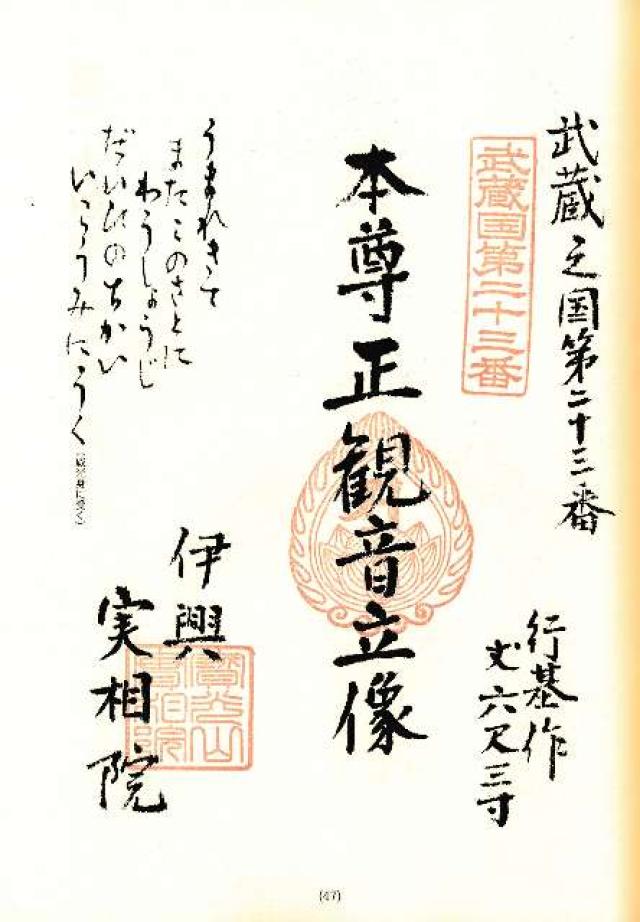 武蔵之国第二十三番
武蔵国第二十三番
行基作
丈六尺三寸
本尊正観音立像
うまれきて
またこのさとに
わうしょうじ
だいひのちかい
いくうみにうく
伊興
実相院
(47)